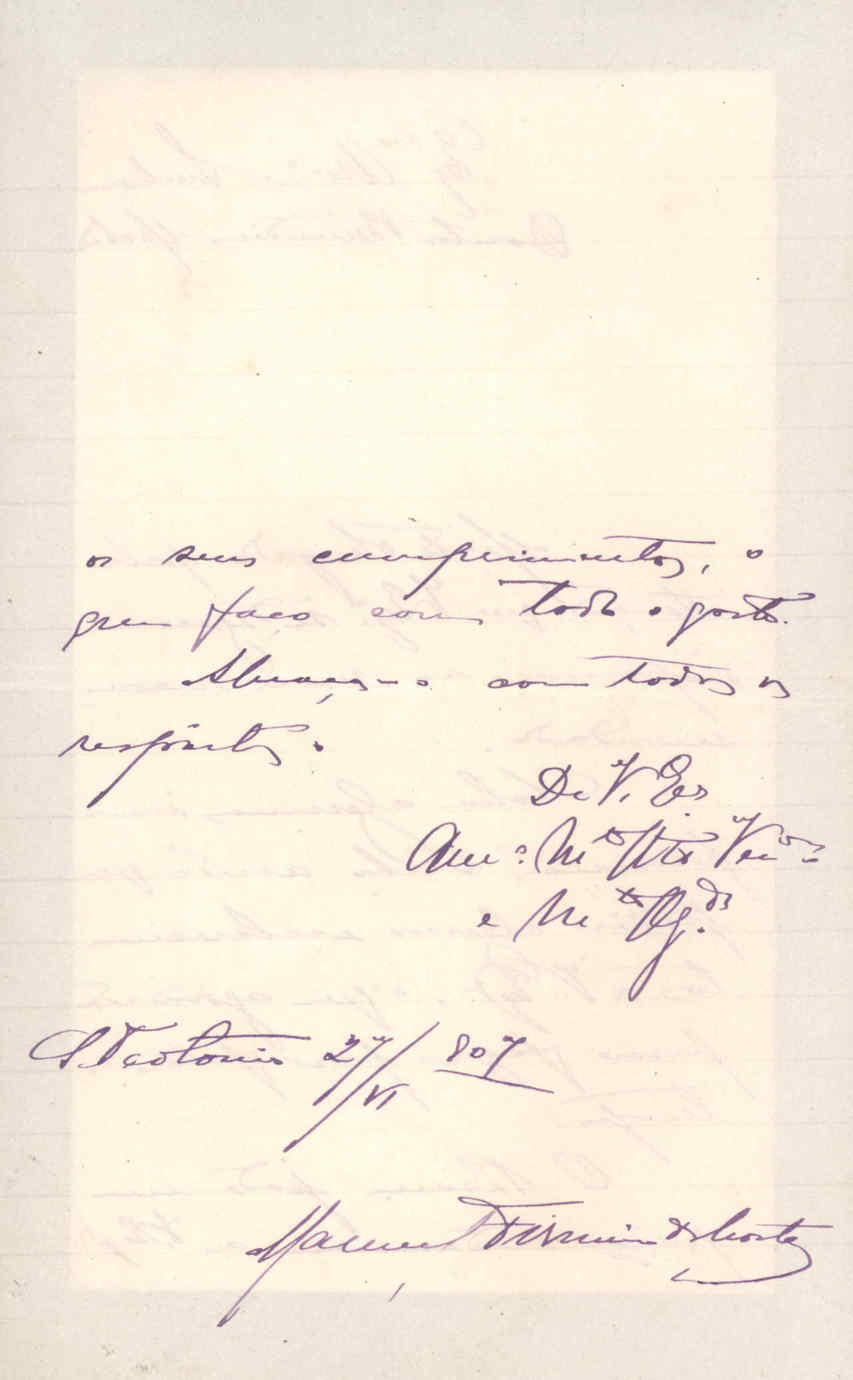 os seus cumprimentos, o
que faço com todo o gosto.
Abraça-o com todos os
respeitos.
De V. Exa
Amo. Mto Atto Venor
e Mto Obgdo
S. Teotonio 27/VI 907
Manuel Firmino da Costa